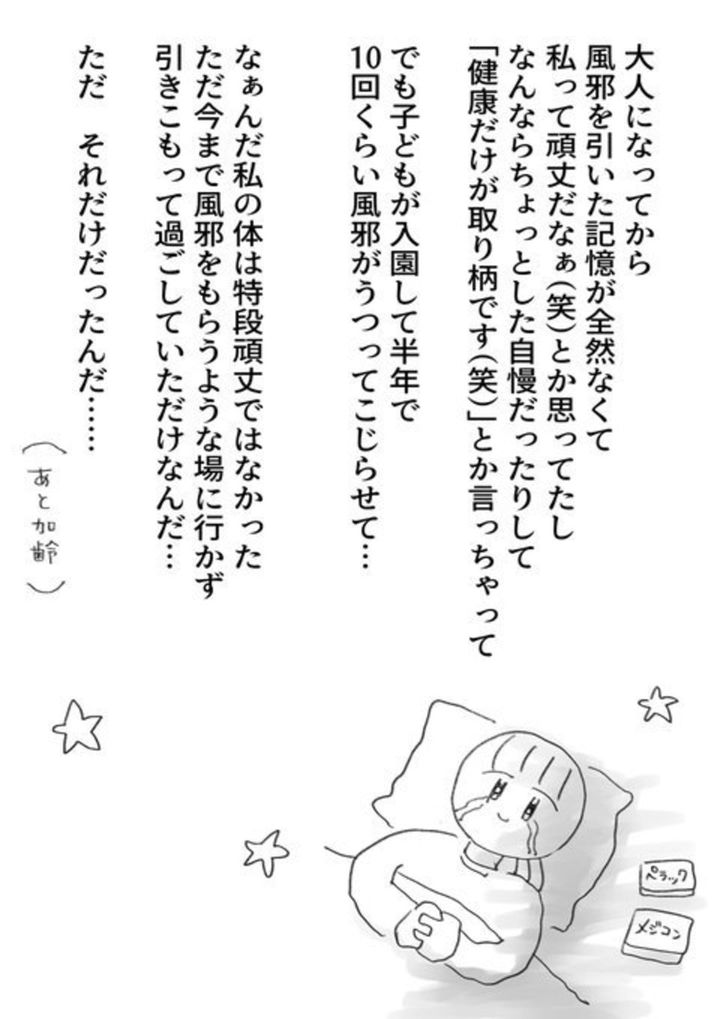 大人になってから
風邪を引いた記憶が全然なくて
私って頑丈だなぁ(笑)とか思ってたし
なんならちょっとした自慢だったりして
「健康だけが取り柄です(笑)」とか言っちゃって
でも子どもが入園して半年で
10回くらい風邪がうつってこじらせて…
なぁんだ私の体は特段頑丈ではなかった
ただ今まで風邪をもらうような場に行かず
引きこもって過ごしていただけなんだ…
ただ　それだけだったんだ……
(あと加齢)
ペラック
メジコン